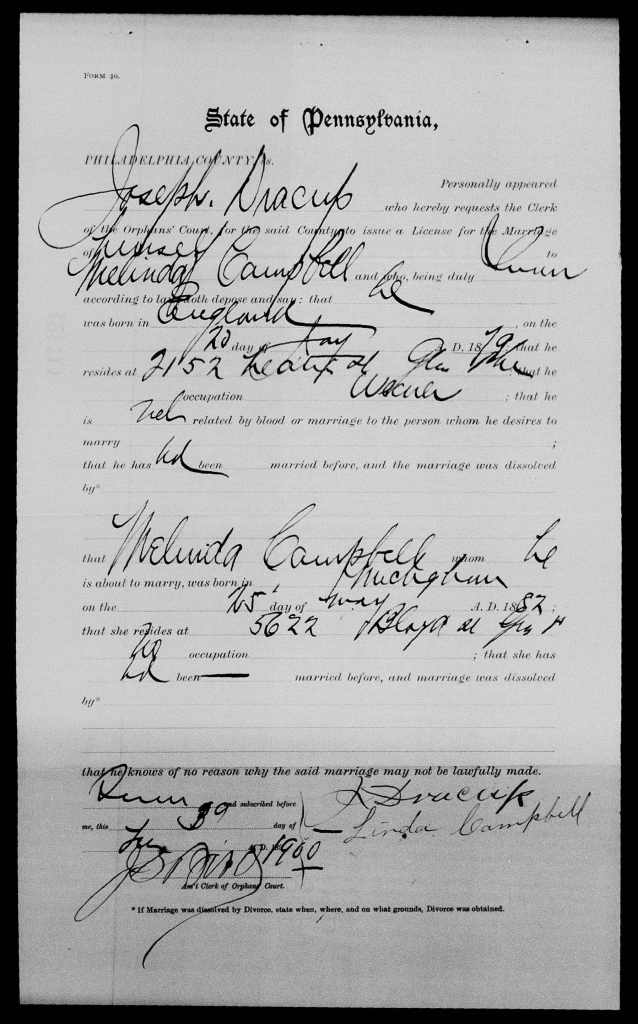 FORM 20.
State of Pennsylvania,
PHILADELPHIA COUNTY, ss.
Joseph Dracup Personally appeared
who hereby requests the Clerk
of the Orphans' Court, for the said County to issue a License for the Marriage
of himself to
Melinda Campbell and who, being duly Sworn
according to law doth depose and say: that he
was born in England, on the
20 day of A. D. 1879; that he
resides at 2152 ; that he
occupation Weaver ; that he
is not related by blood or marriage to the person whom he desires to
marry ;
that he has not been married before, and the marriage was dissolved
by*
that Melinda Campbell whom he
is about to marry, was born in Michigan
on the 25 day of May A. D. 1882;
that she resides at 5622
No occupation ; that she has
not been married before, and marriage was dissolved
by*
that he knows of no reason why the said marriage may not be lawfully made.
Sworn and subscribed before
me, this day of
A. D. 1900
J Dracup
Linda Campbell
Ass't Clerk of Orphans' Court.
* If Marriage was dissolved by Divorce, state when, where, and on what grounds, Divorce was obtained.